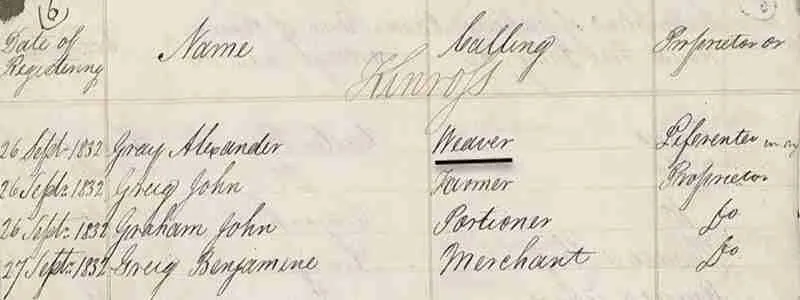 (6)
Date of Registering Name Calling Proprietor or
Kinross
26 Sept. 1832 Gray Alexander Weaver Liferenter
26 Sept. 1832 Greig John Farmer Proprietor
26 Sept. 1832 Graham John Portioner Do
27 Sept. 1832 Greig Benjamine Merchant Do